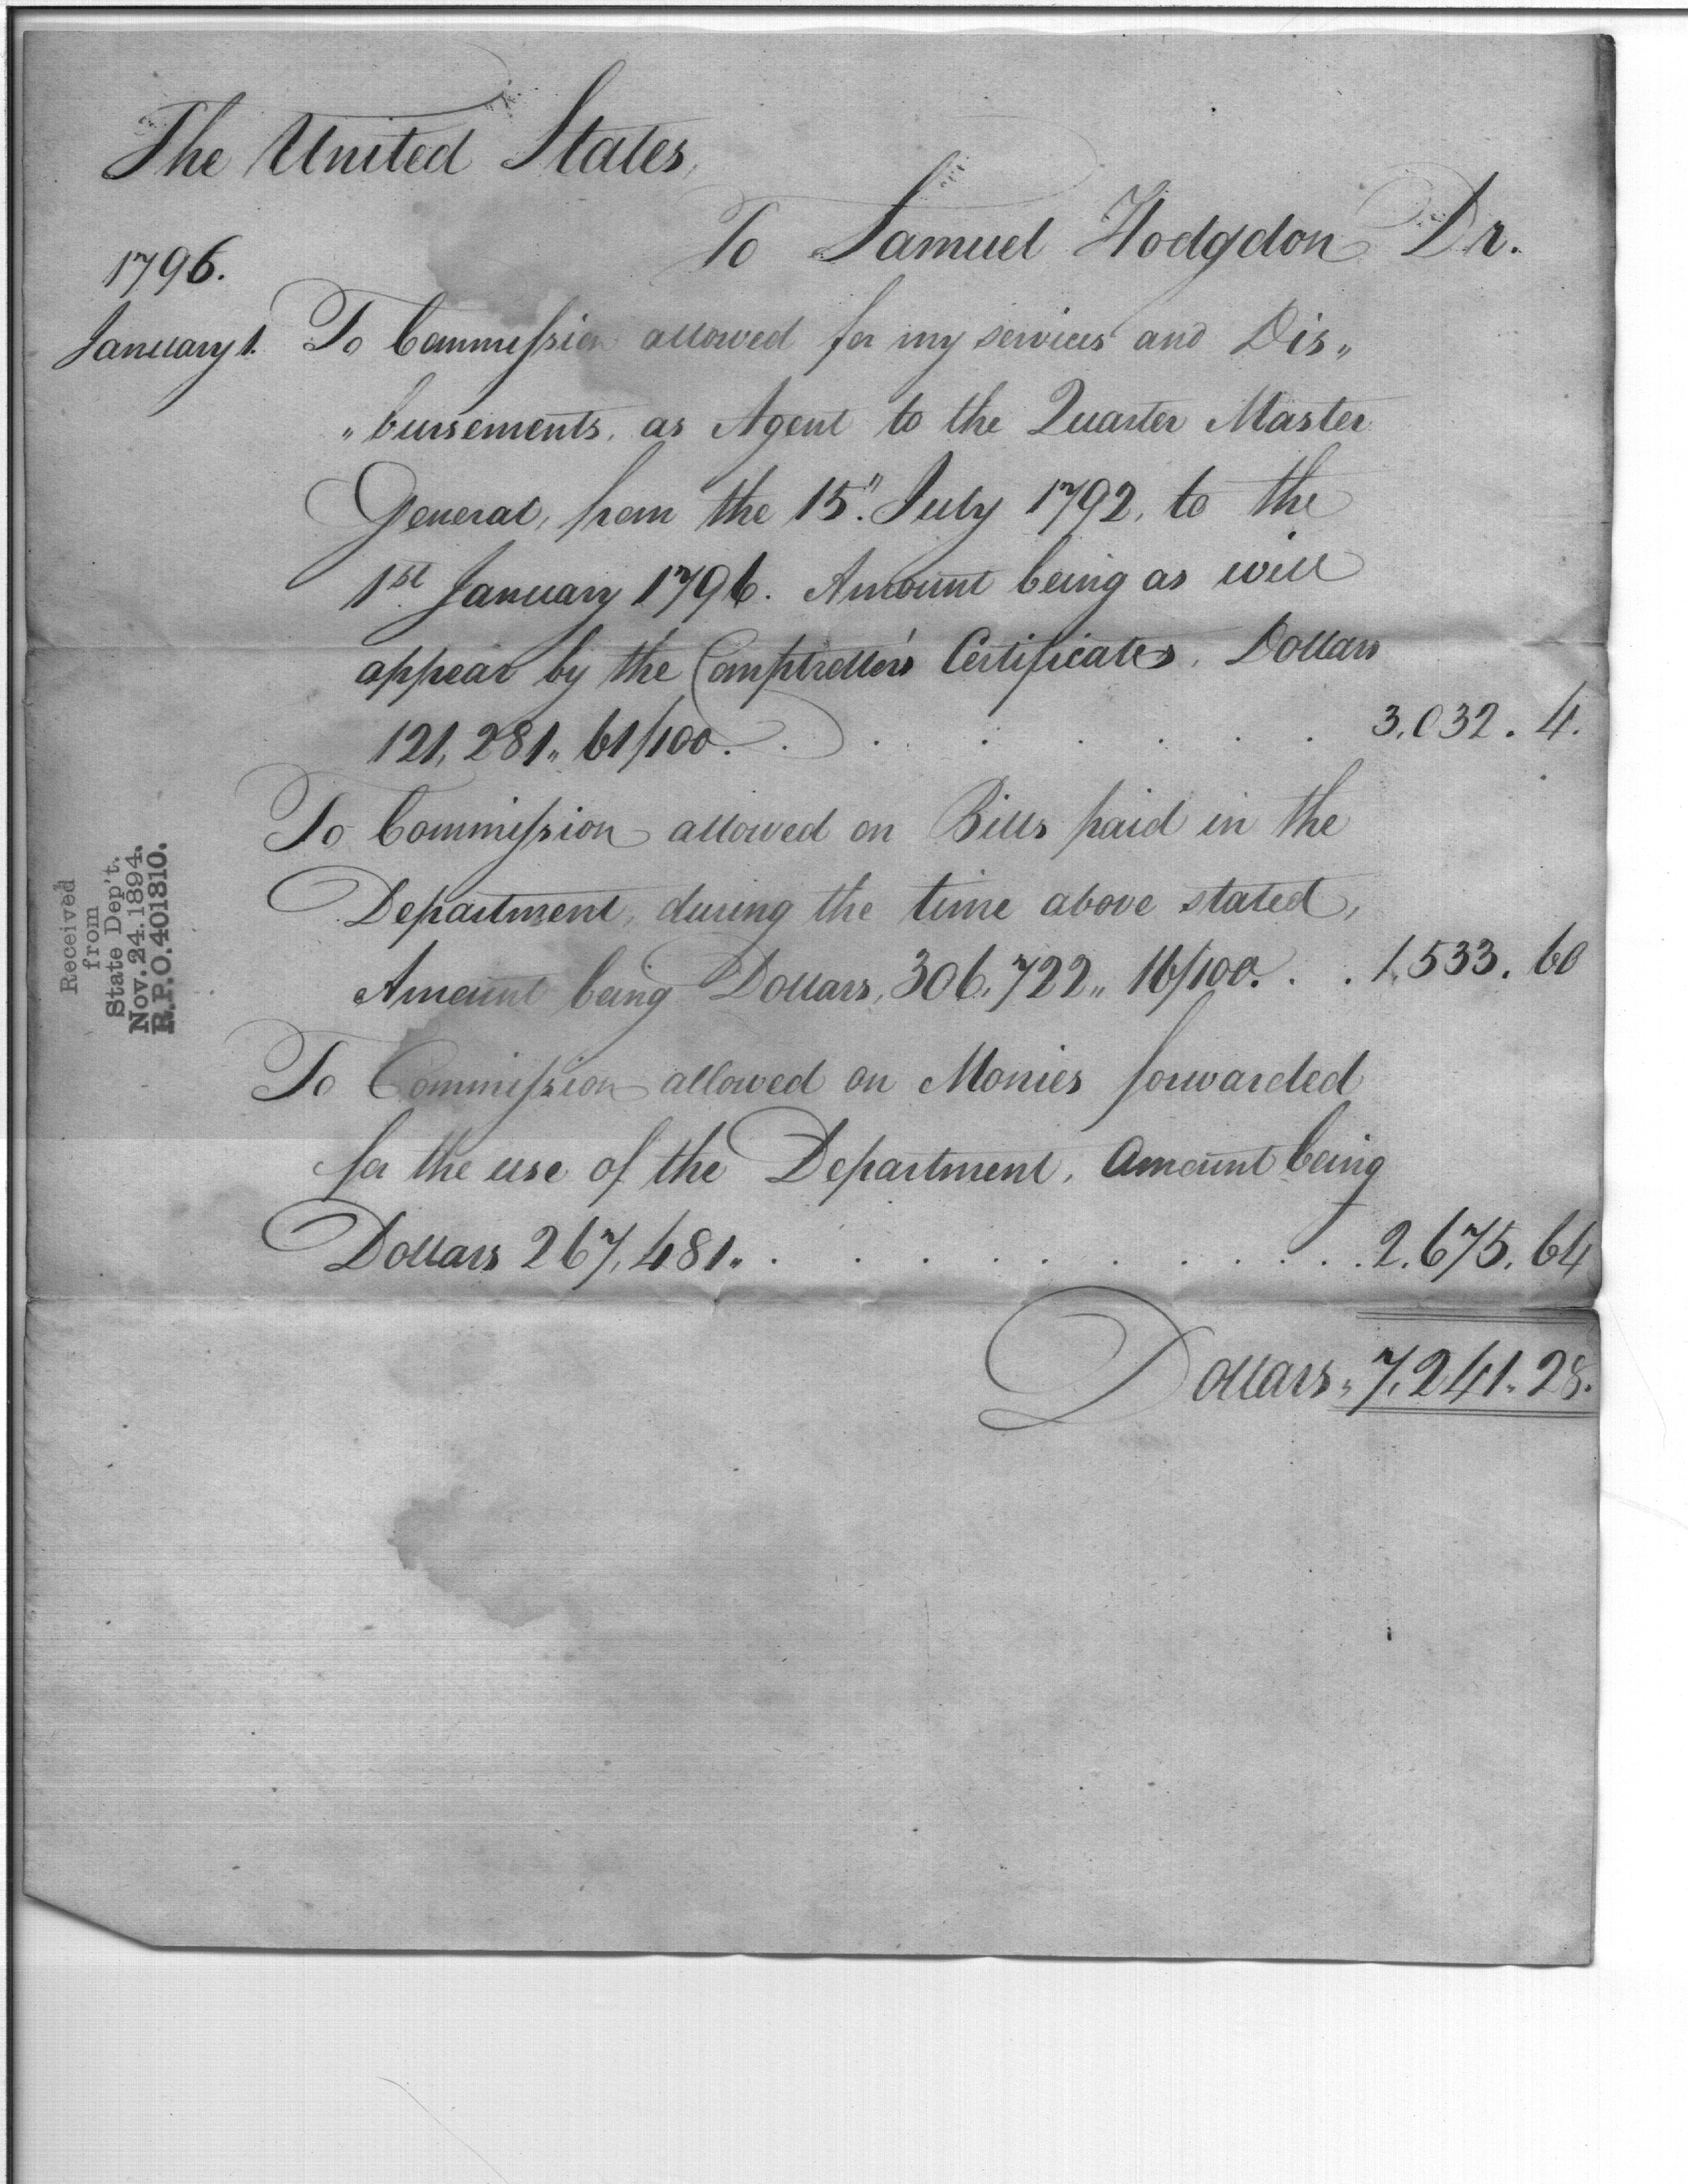 The United States,
To Samuel Hodgdon Dr.
1796.
January 1. To Commission allowed for my services and Dis„
„bursements, as Agent to the Quarter Master
General, from the 15." July 1792, to the
1st January 1796. Amount being as will
appear by the Comptroller's Certificates, Dollars
121,281„ 61/100. . . . . . . . . 3,032. 4.
To Commission allowed on Bills paid in the
Department, during the time above stated,
Amount being Dollars, 306,722„ 16/100. . . 1,533. 60
To Commission allowed on Monies forwarded
for the use of the Department, Amount being
Dollars 267,481„ . . . . . . . . . . 2,675. 64
Dollars„ 7,241. 28.
Received
from
State Dep't.
Nov. 24. 1894.
R.P.O. 401810.